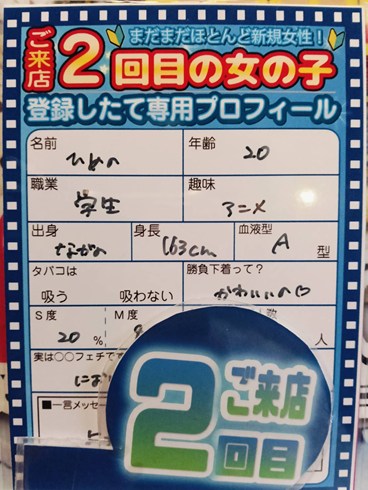 まだまだほとんど新規女性!
ご来店2回目の女の子
登録したて専用プロフィール
名前 ひめの
年齢 20
職業 学生
趣味 アニメ
出身 ながの
身長 163cm
血液型 A 型
タバコは
吸う 吸わない
勝負下着って?
かわいいの♡
S度 20 %
M度
人数
人
実は○○フェチです
にお
■一言メッセー
2
ご来店
回目